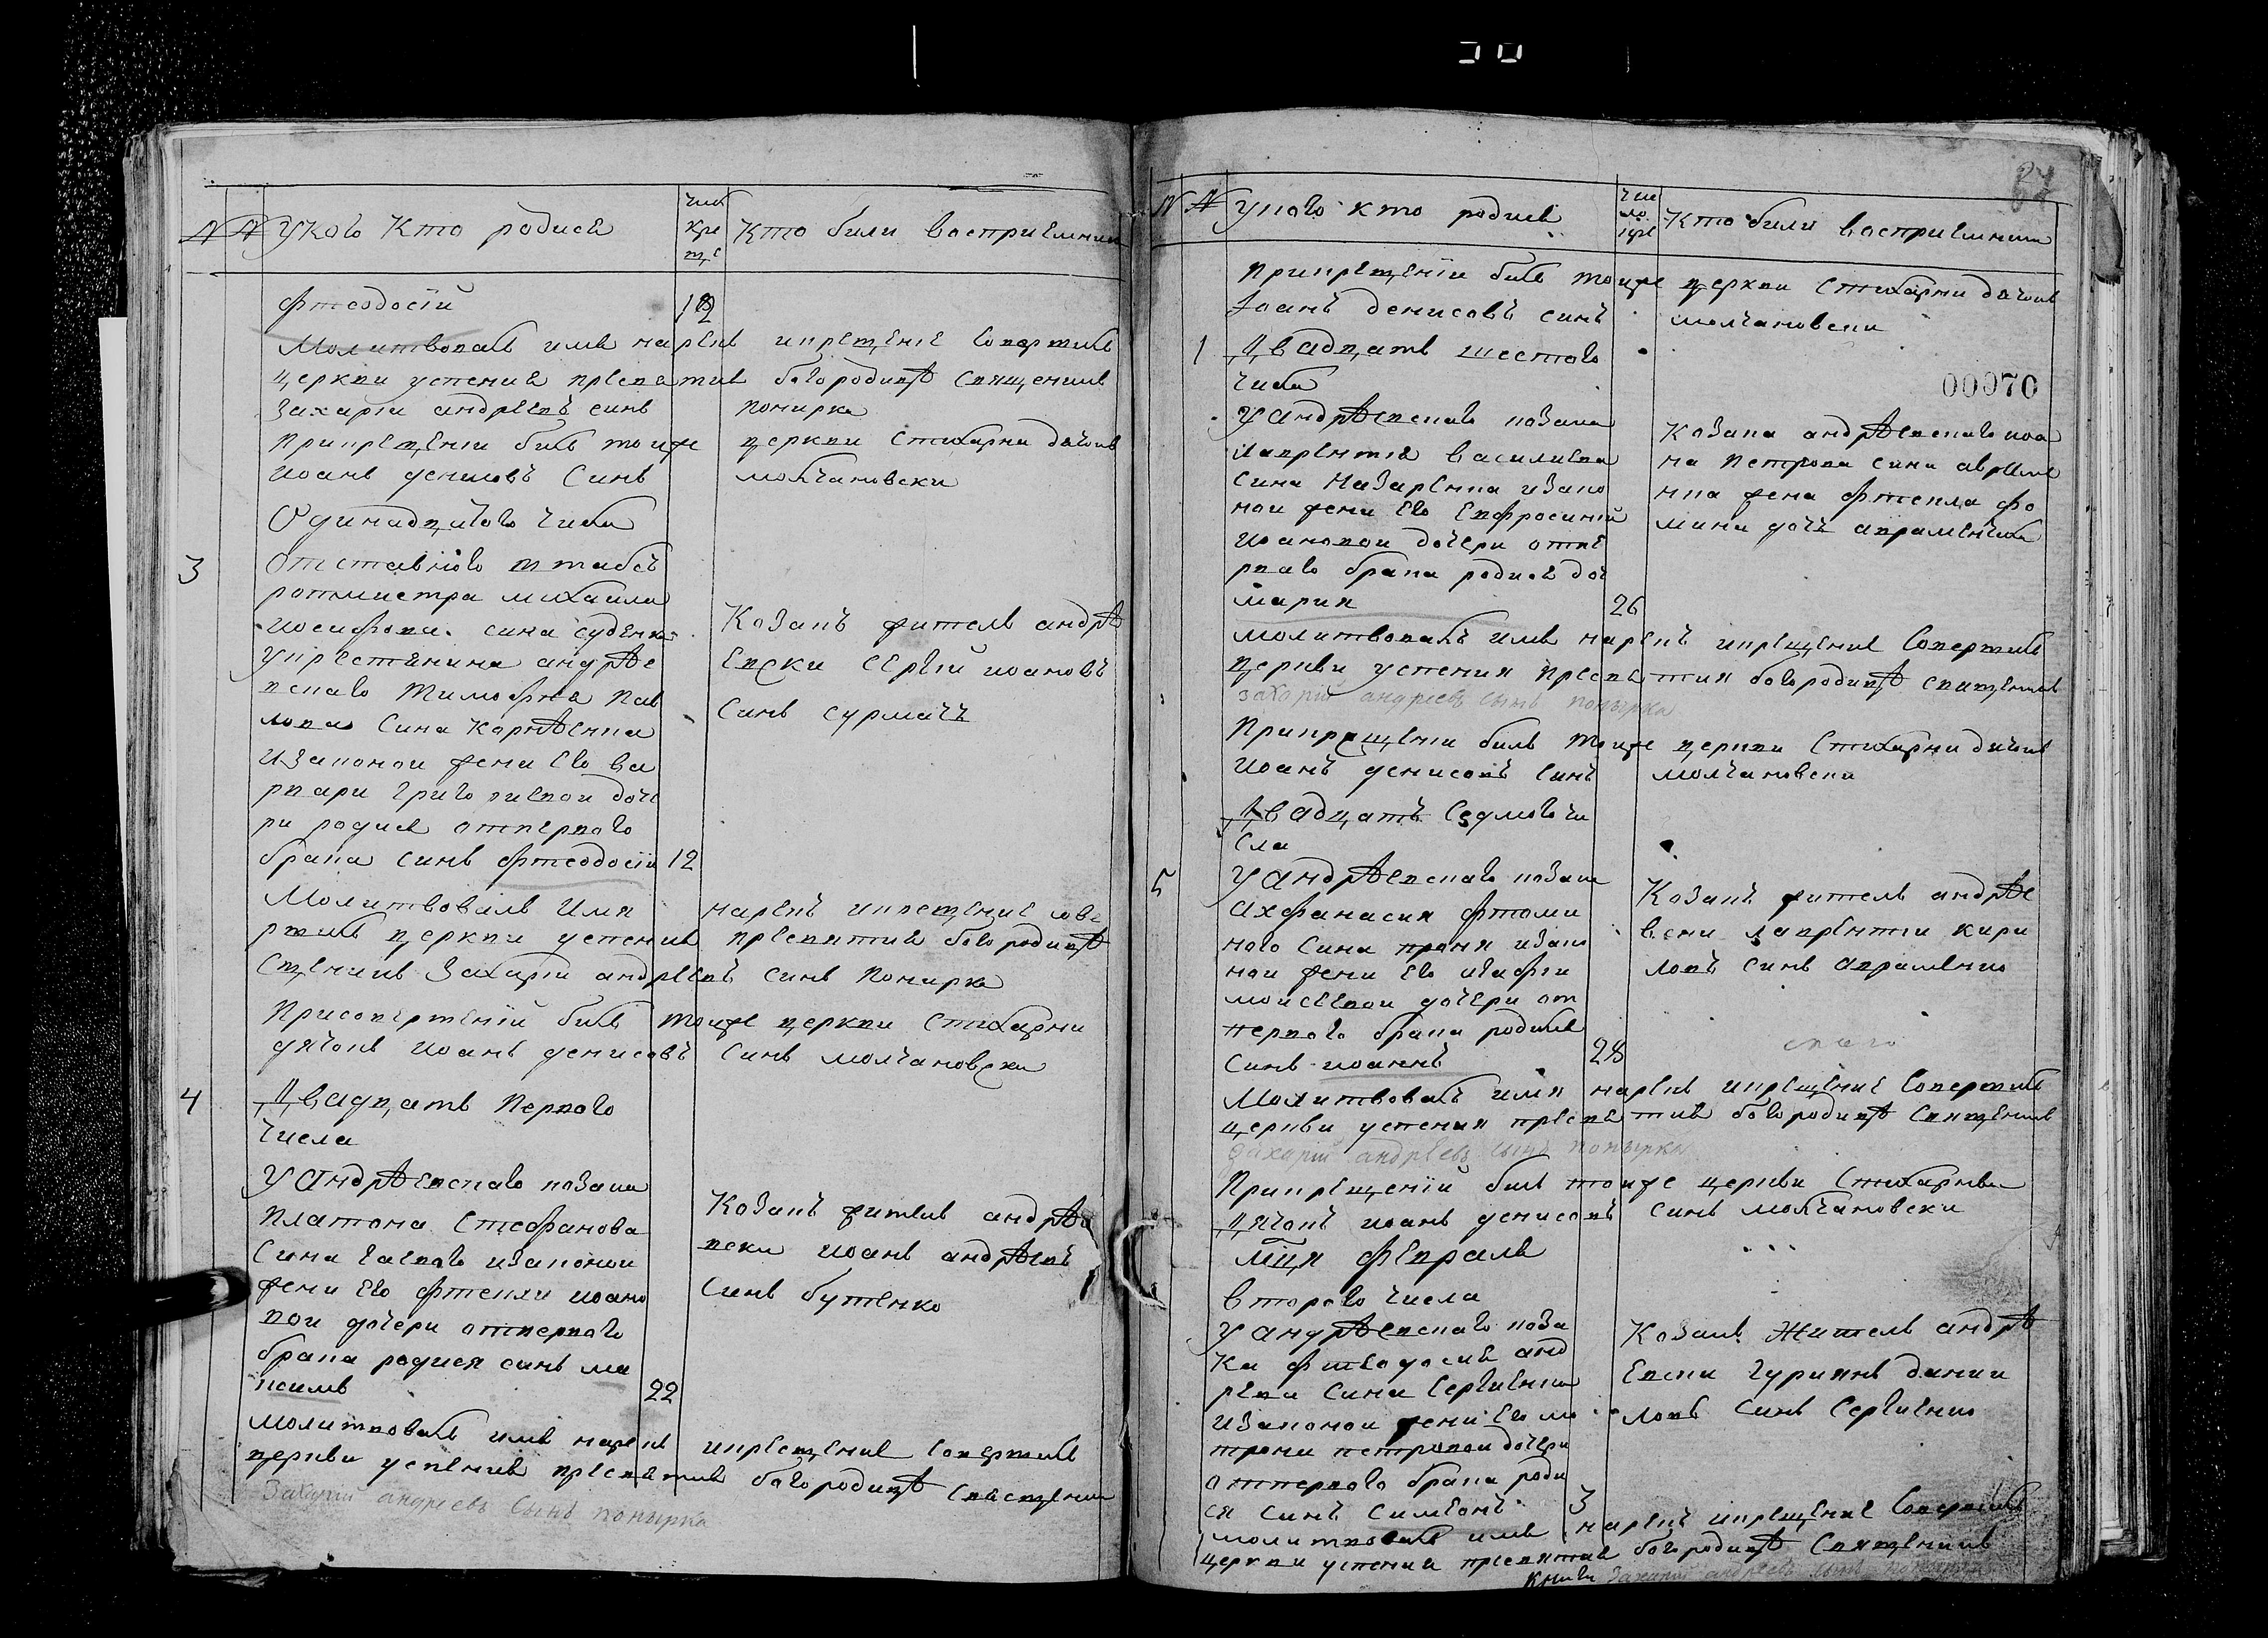 № № У кого Кто родися
Чис кре щ:
Кто били восприемники
фтеодосiй 12
Молитвовавъ имя нарекъ и крещенiе совершилъ
церкви успения пресвятия богородицѣ священникъ
Захарiи андреевъ синъ попирка
При крещенiи билъ тоиже церкви стихарни дячокъ
иоанъ денисовъ Синъ молчановски
Одинадцятого Числа
3 Отставного штабсъ
ротмистра михаила
иосифова сина суденка
у крестянина андрѣе
вскаго Тимофея Пав
лова Сина Корнѣенка
изаконои жени его ва
рвари григориевои доче
ри родися отпервого
брака синъ фтеодосiи 12
Козакъ житель андрѣ
евски Сергiй иоановъ
Синъ сурмачъ
Молитвовалъ Имя нарекъ икрещение сове
ршилъ церкви успения пресвятия богородицѣ
сщенникъ Захарiи андреевъ синъ Попирка
Присовершенiй билъ тоиже церкви Стихарни
дячокъ иоанъ денисовъ Синъ молчановски
4 Двадцать Первого
Числа
У андрѣевскаго козака
Платона Стефанова
Сина гаевого изаконои
жени Его фтекли иоано
вои дочери отпервого
брака родися синъ ма
ксимъ 22
Козакъ житель андрѣе
вски иоанъ андрѣевъ
Синъ бутенко
молитвовалъ имя нарекъ икрещение совершилъ
церкви успения пресвятия богородицѣ священникъ
Захарiй андреевъ сынъ попырка
84
№ № У кого кто родися
Чис ло кре
Кто били восприемники
При крещенiи билъ тоиже церкви стихарни дячокъ
Iоанъ денисовъ синъ молчановски
1 Двадцать шестого
числа
00070
У андрѣевскаго козака
лаврентия василиева
сина Назаренка изако
нои жени его Евфросинiи
иоановои дочери отпе
рваго брака родися доч
мария 26
Козака андрѣевскаго иоа
на Петрова сина авраме
нка жена фтекла фо
мина дочъ авраменкова
молитвовалъ имя нарекъ икрещение совершилъ
церкви успения пресвятия богородицѣ священникъ
захарiй андреевъ сынъ попырка
При крещенiи билъ тоиже церкви Стихарни дячокъ
иоанъ денисовъ синъ молчановски
Двадцатъ Седмого чи
сла
5 У андрѣевскаго козака
Ахфанасия фтоми
ного Сина проня изако
нои жени Его агафiи
моисеевои дочери от
первого брака родился
синъ иоаннъ 28
Козакъ житель андрѣе
вски лаврентiи кири
ловъ синъ авраменко
Молитвовалъ имя нарекъ икрещение совершилъ
церкви успения пресвятия богородицѣ священникъ
захарiй андреевъ сынъ попырка
При крещенiй билъ тоиже церкви Стихарни
Дячокъ иоанъ денисовъ Синъ молчановски
мця февраля
второго числа
У андрѣевскаго коза
Ка фтеодосия анд
реева Сина Сергиенка
изаконои жени Его ма
трони петровои дочери
отпервого брака роди
ся Синъ Симеонъ 3
Козакъ Житель андрѣ
евски гуриянъ дании
ловъ Синъ Сергиенко
молитвовалъ имя нарекъ икрещение Совершилъ
церкви успения пресвятия богородицѣ Священникъ
Книги захарiй андреевъ сынъ попырка